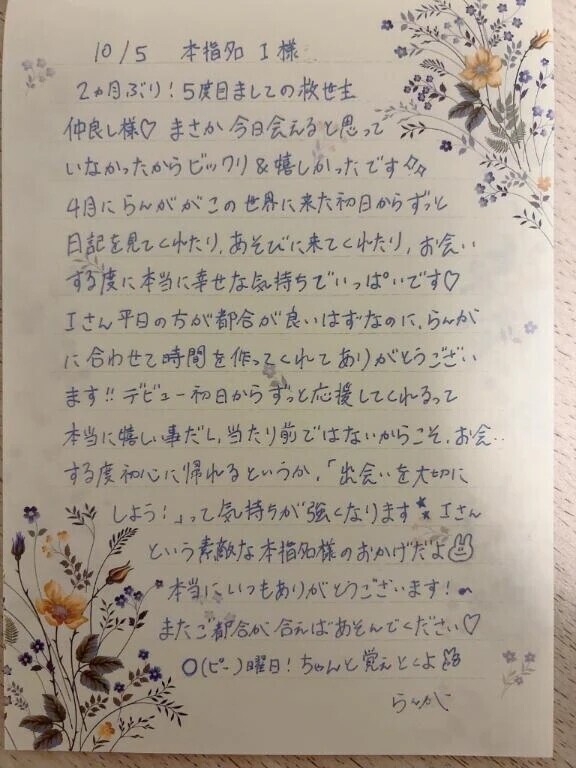 10/5 本指名 I様
2ヵ月ぶり!5度目ましての救世主
仲良し様♡ まさか今日会えると思って
いなかったからビックリ&嬉しかったです
4月にらんががこの世界に来た初日からずっと
日記を見てくれたり、あそびに来てくれたり、お会い
する度に本当に幸せな気持ちでいっぱいです♡
Iさん平日の方が都合が良いはずなのに、らんが
に合わせて時間を作ってくれてありがとうござい
ます!!デビュー初日からずっと応援してくれるって
本当に嬉しい事だし、当たり前ではないからこそ、お会い
する度初心に帰れるというか、「出会いを大切に
しよう!」って気持ちが強くなります★★Iさん
という素敵な本指名様のおかげだよ
本当にいつもありがとうございます!
またご都合が合えばあそんでください♡
○(ピー)曜日!ちゃんと覚えとくよ
らんが